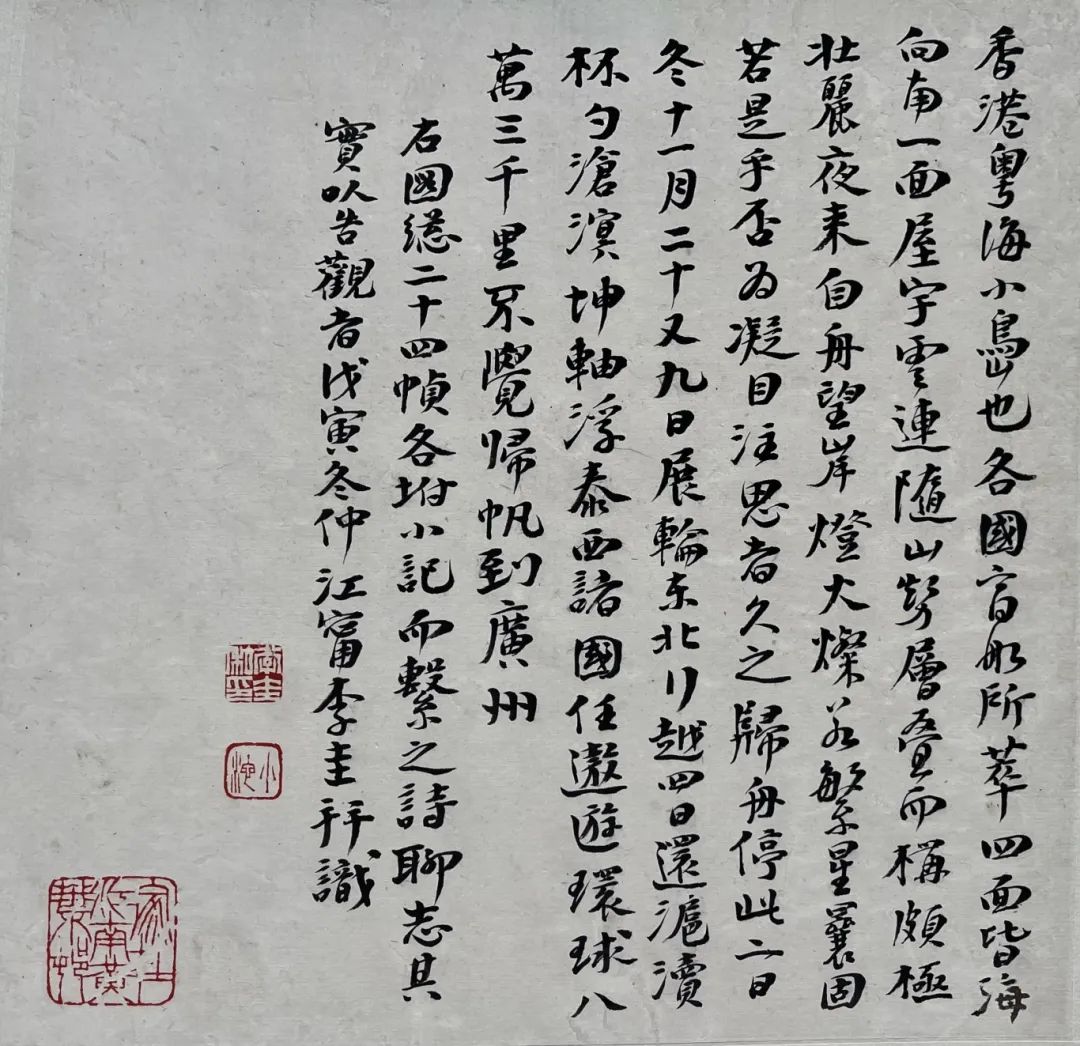 香港粤海小島也各國官船所萃四面皆海
向南一面屋宇雲連隨山勢層叠而構頗極
壯麗夜来自舟望岸燈火燦若繁星曩固
若是乎否為凝目注思者久之歸舟停此二日
冬十一月二十又九日展輪東北行越四日還滬瀆
杯勺滄溟坤軸浮泰西諸國任遨遊環球八
萬三千里不覺歸帆到廣州
右圖總二十四幀各坿小記而繫之詩聊志其
實以告觀者戊寅冬仲江甯李圭拜識
李圭
小池